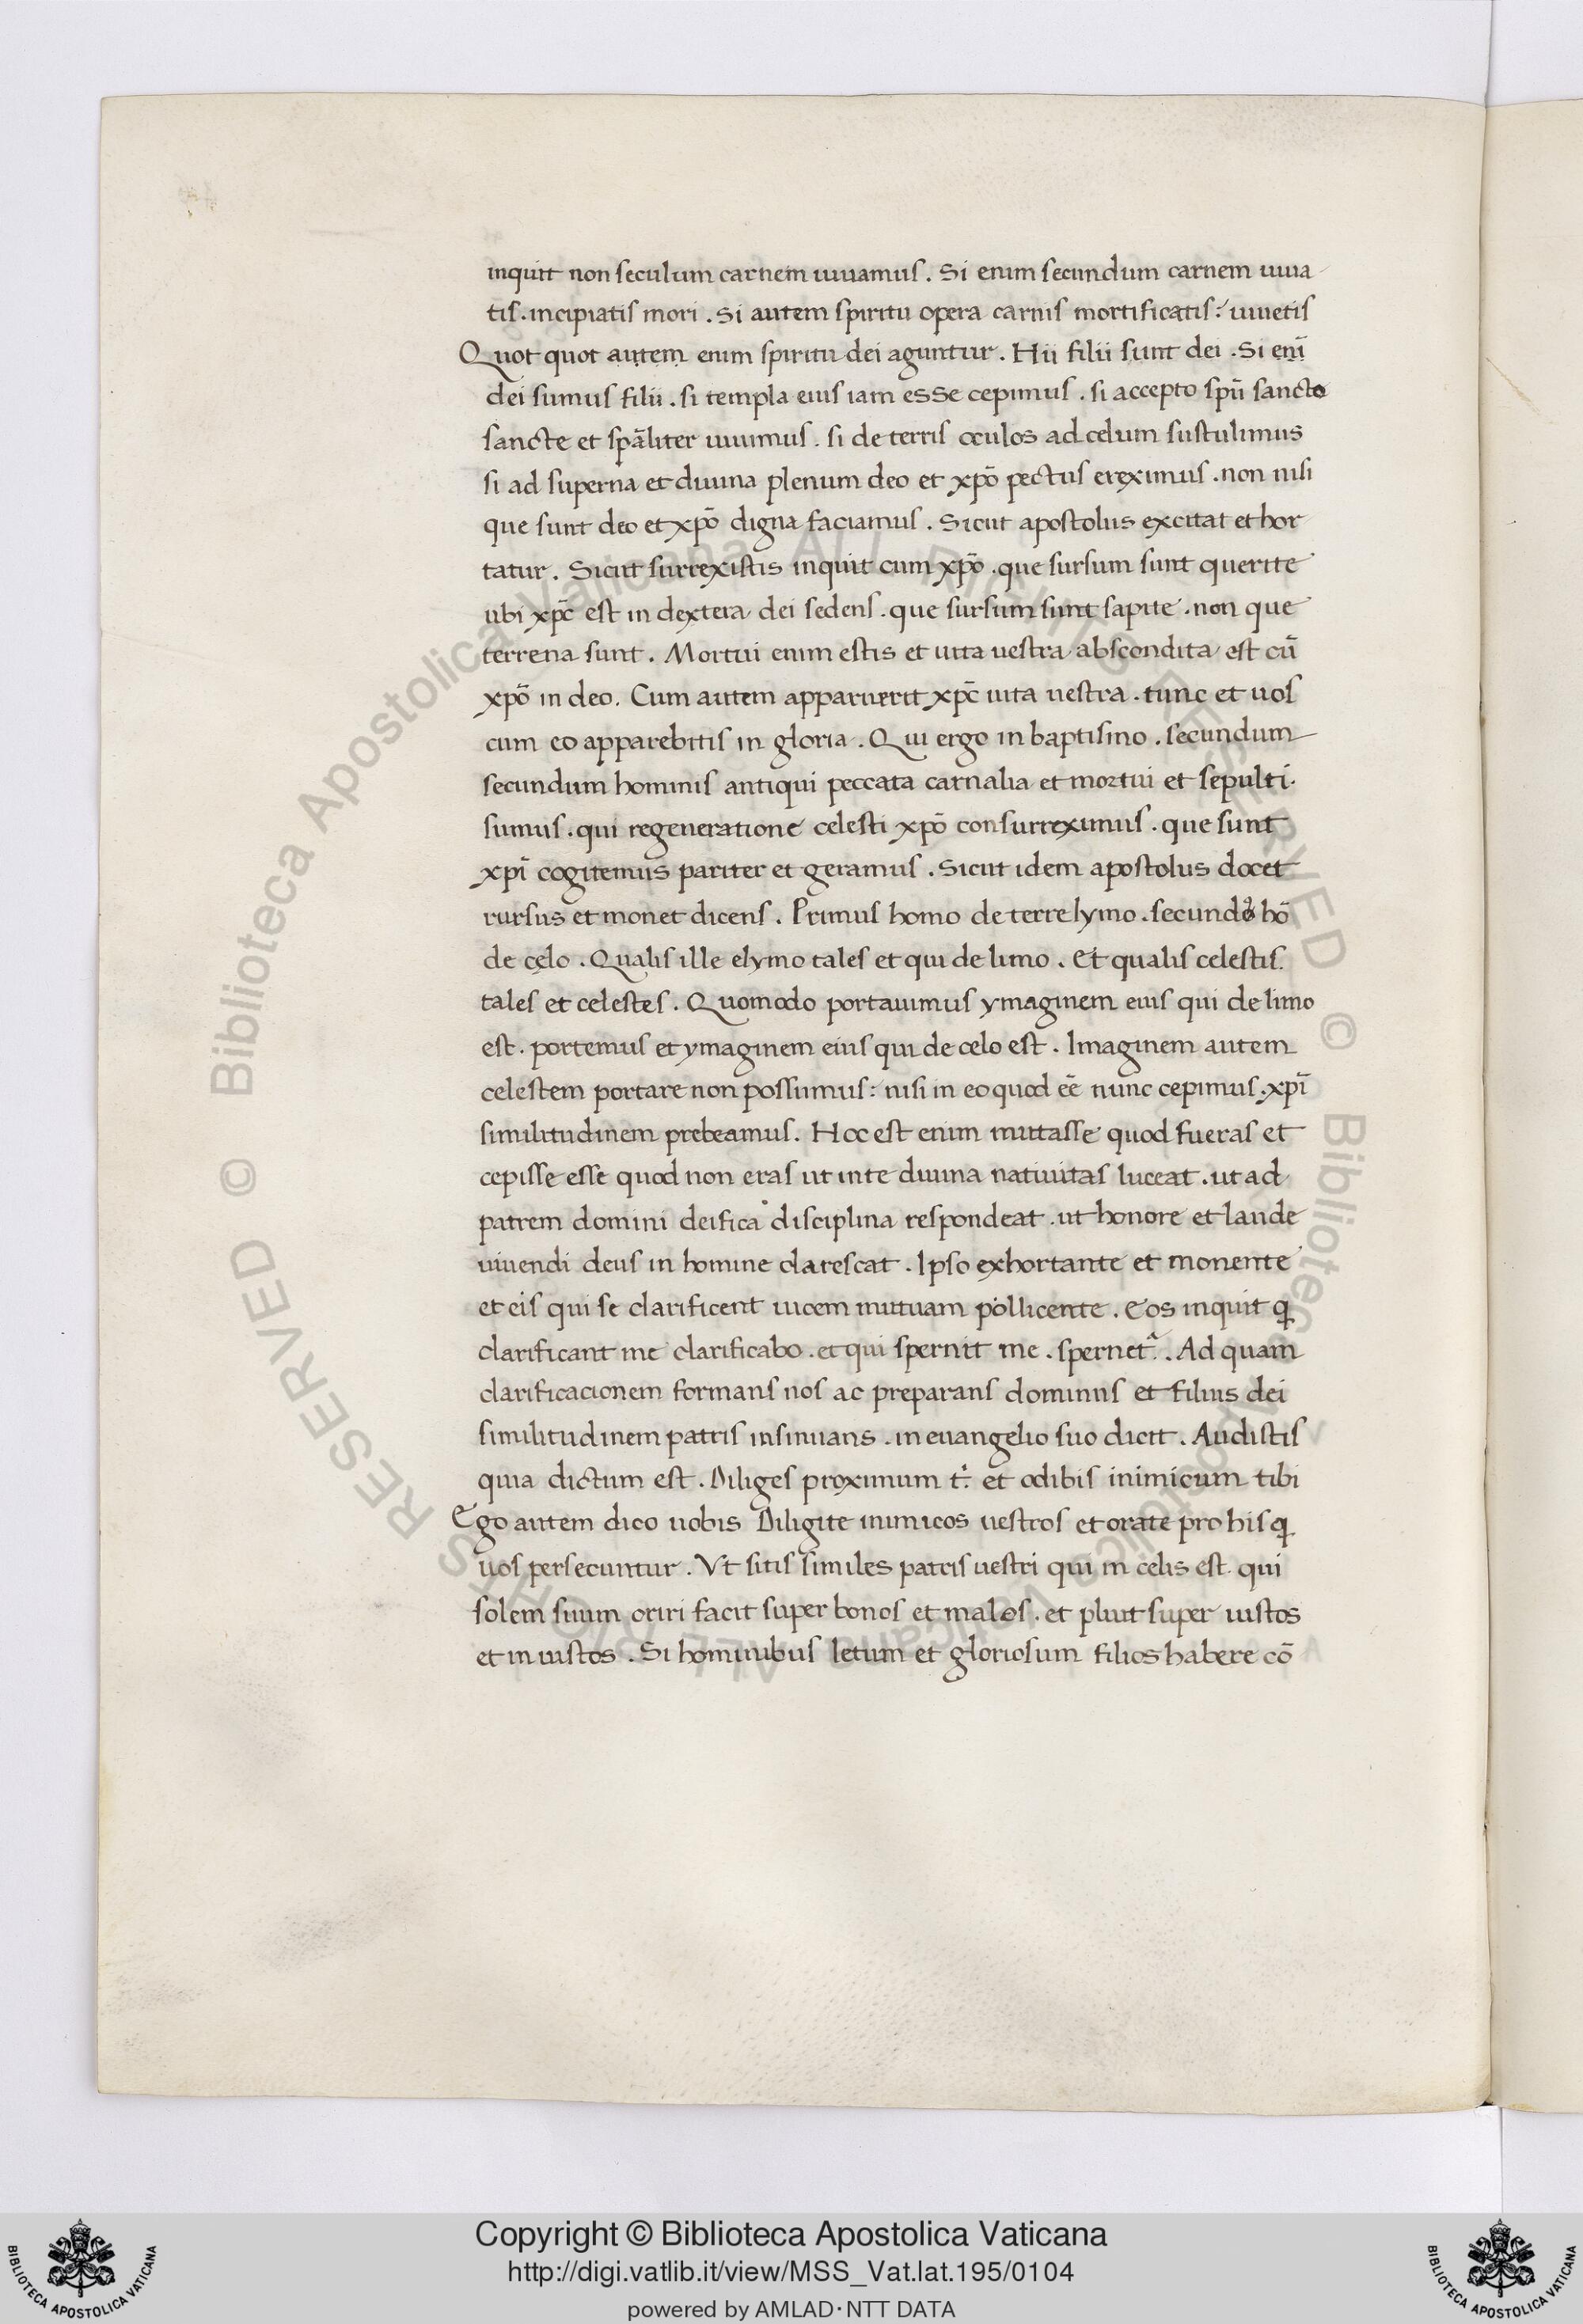 inquit non seculum carnem uiuamus . Si enim secundum carnem uiua
tis . incipiatis mori . Si autem spiritu opera carnis mortificatis : uiuetis
Quot quot autem enim spiritu dei aguntur . Hii filii sunt dei . Si eni̅
dei sumus filii . si templa eius iam esse cepimus . si accepto spu̅ sancto
sancte et spa̅liter uiuimus . si de terris oculos ad celum sustulimus
si ad superna et diuina plenum deo et xpo̅ pectus ereximus . non nisi
que sunt deo et xpo̅ digna faciamus . Sicut apostolus excitat et hor
tatur . Sicut surrexistis inquit cum xpo̅ . que sursum sunt querite
ubi xpc̅ est in dextera dei sedens . que sursum sunt sapite . non que
terrena sunt . Mortui enim estis et uita uestra abscondita est cu̅
xpo̅ in deo . Cum autem apparuerit xpc̅ uita uestra . tunc et uos
cum eo apparebitis in gloria . Qui ergo in baptismo . secundum
secundum hominis antiqui peccata carnalia et mortui et sepulti .
sumus . qui regeneratione celesti xpo̅ consurreximus . que sunt
xpi̅ cogitemus pariter et geramus . Sicut idem apostolus docet
rursus et monet dicens . Primus homo de terre lymo . secundus ho̅
de celo . Qualis ille elymo tales et qui de limo . Et qualis celestis .
tales et celestes . Quomodo portauimus ymaginem eius qui de limo
est . portemus et ymaginem eius qui de celo est . Imaginem autem
celestem portare non possumus : nisi in eo quod ee̅ nunc cepimus . xpi̅
similitudinem prebeamus . Hoc est enim mutasse quod fueras et
cepisse esse quod non eras ut inte diuina natiuitas luceat . ut ad
patrem domini deifica disciplina respondeat . ut honore et laude
uiuendi deus in homine clarescat . Ipso exhortante et monente
et eis qui se clarificent uicem mutuam pollicente . Eos inquit q
clarificant me clarificabo . et qui spernit me . spernet . Ad quam
clarificacionem formans nos ac preparans dominus et filius dei
similitudinem patris insinuans . in euangelio suo dicit . Audistis
quia dictum est . Diliges proximum t . et odibis inimicum tibi
Ego autem dico uobis Diligite inimicos uestros et orate pro his q
uos persecuntur . Vt sitis similes patris uestri qui in celis est . qui
solem suum oriri facit super bonos et malos . et pluit super iustos
et in iustos . Si hominibus letum et gloriosum filios habere co̅
© Biblioteca Apostolica Vaticana ALL RIGHTS RESERVED
© Biblioteca Apostolica Vaticana ALL RIGHTS RESERVED
Copyright © Biblioteca Apostolica Vaticana
http://digi.vatlib.it/view/MSS_Vat.lat.195/0104
powered by AMLAD · NTT DATA
BIBLIOTECA APOSTOLICA VATICANA
BIBLIOTECA APOSTOLICA VATICANA